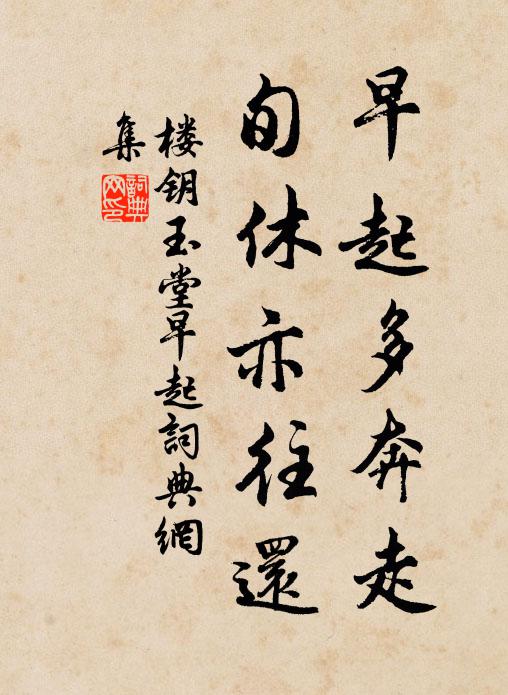 早起多奔走
旬休亦往還
楼钥玉堂早起詞典網
集
詞典
网印